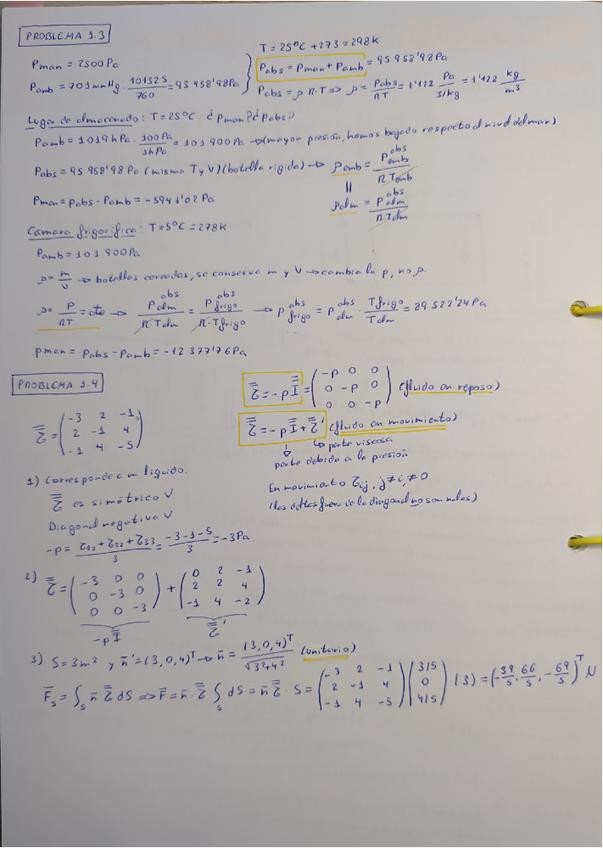 PROBLEMA 1.3
T = 25ºC + 273 = 298 K
Pman = 2500 Pa
Pamb = 701 mmHg · 101325/760 = 93 458'98 Pa
Pabs = Pman + Pamb = 95 958'98 Pa
Pabs = ρ R·T => ρ = Pabs/RT = 1'122 Pa/J/kg = 1'122 kg/m3
Lugar de almacenado: T = 25ºC ¿Pman? ¿Pabs?
Pamb = 1019 hPa · 100 Pa/1 hPa = 101 900 Pa → (mayor presión, hemos bajado respecto al nivel del mar)
Pabs = 95 958'98 Pa (mismo T y V) (botella rígida) → ρemb = Pemb^abs/R Temb
=
ρalm = Palm^abs/R Talm
Pman = Pabs - Pamb = -5941'02 Pa
Cámara frigorífica: T = 5ºC = 278 K
Pamb = 101 900 Pa
ρ = m/V → botellas cerradas, se conserva m y V → cambia la p, no ρ.
ρ = P/RT = cte → Palm^abs/R·Talm = Pfrigo^abs/R·Tfrigo → pfrigo^abs = palm^abs · Tfrigo/Talm = 89 522'24 Pa
pman = Pabs - Pamb = -12 377'76 Pa
PROBLEMA 1.4
τ = -p I = (-p 0 0
0 -p 0
0 0 -p) (fluido en reposo)
τ = (-3 2 -1
2 -1 4
-1 4 -5)
τ = -p I + τ' (fluido en movimiento)
parte viscosa
parte debido a la presión
1) Corresponde a un líquido.
τ es simétrico V
Diagonal negativa V
-p = (τ11 + τ22 + τ33)/3 = (-3-1-5)/3 = -3 Pa
En movimiento τij, j≠i, ≠0
(los de fuera de la diagonal no son nulos)
2) τ = (-3 0 0
0 -3 0
0 0 -3) + (0 2 -1
2 2 4
-1 4 -2)
-p I
τ'
3) S = 3m² y n' = (3,0,4)^T → n = (3,0,4)^T/√3²+4² (unitario)
Fs = ∫s n τ dS => F = n · τ ∫s dS = n τ · S = (-3 2 -1
2 -1 4
-1 4 -5) (3/5
0
4/5) (3) = (-39/5, 66/5, -69/5)^T N